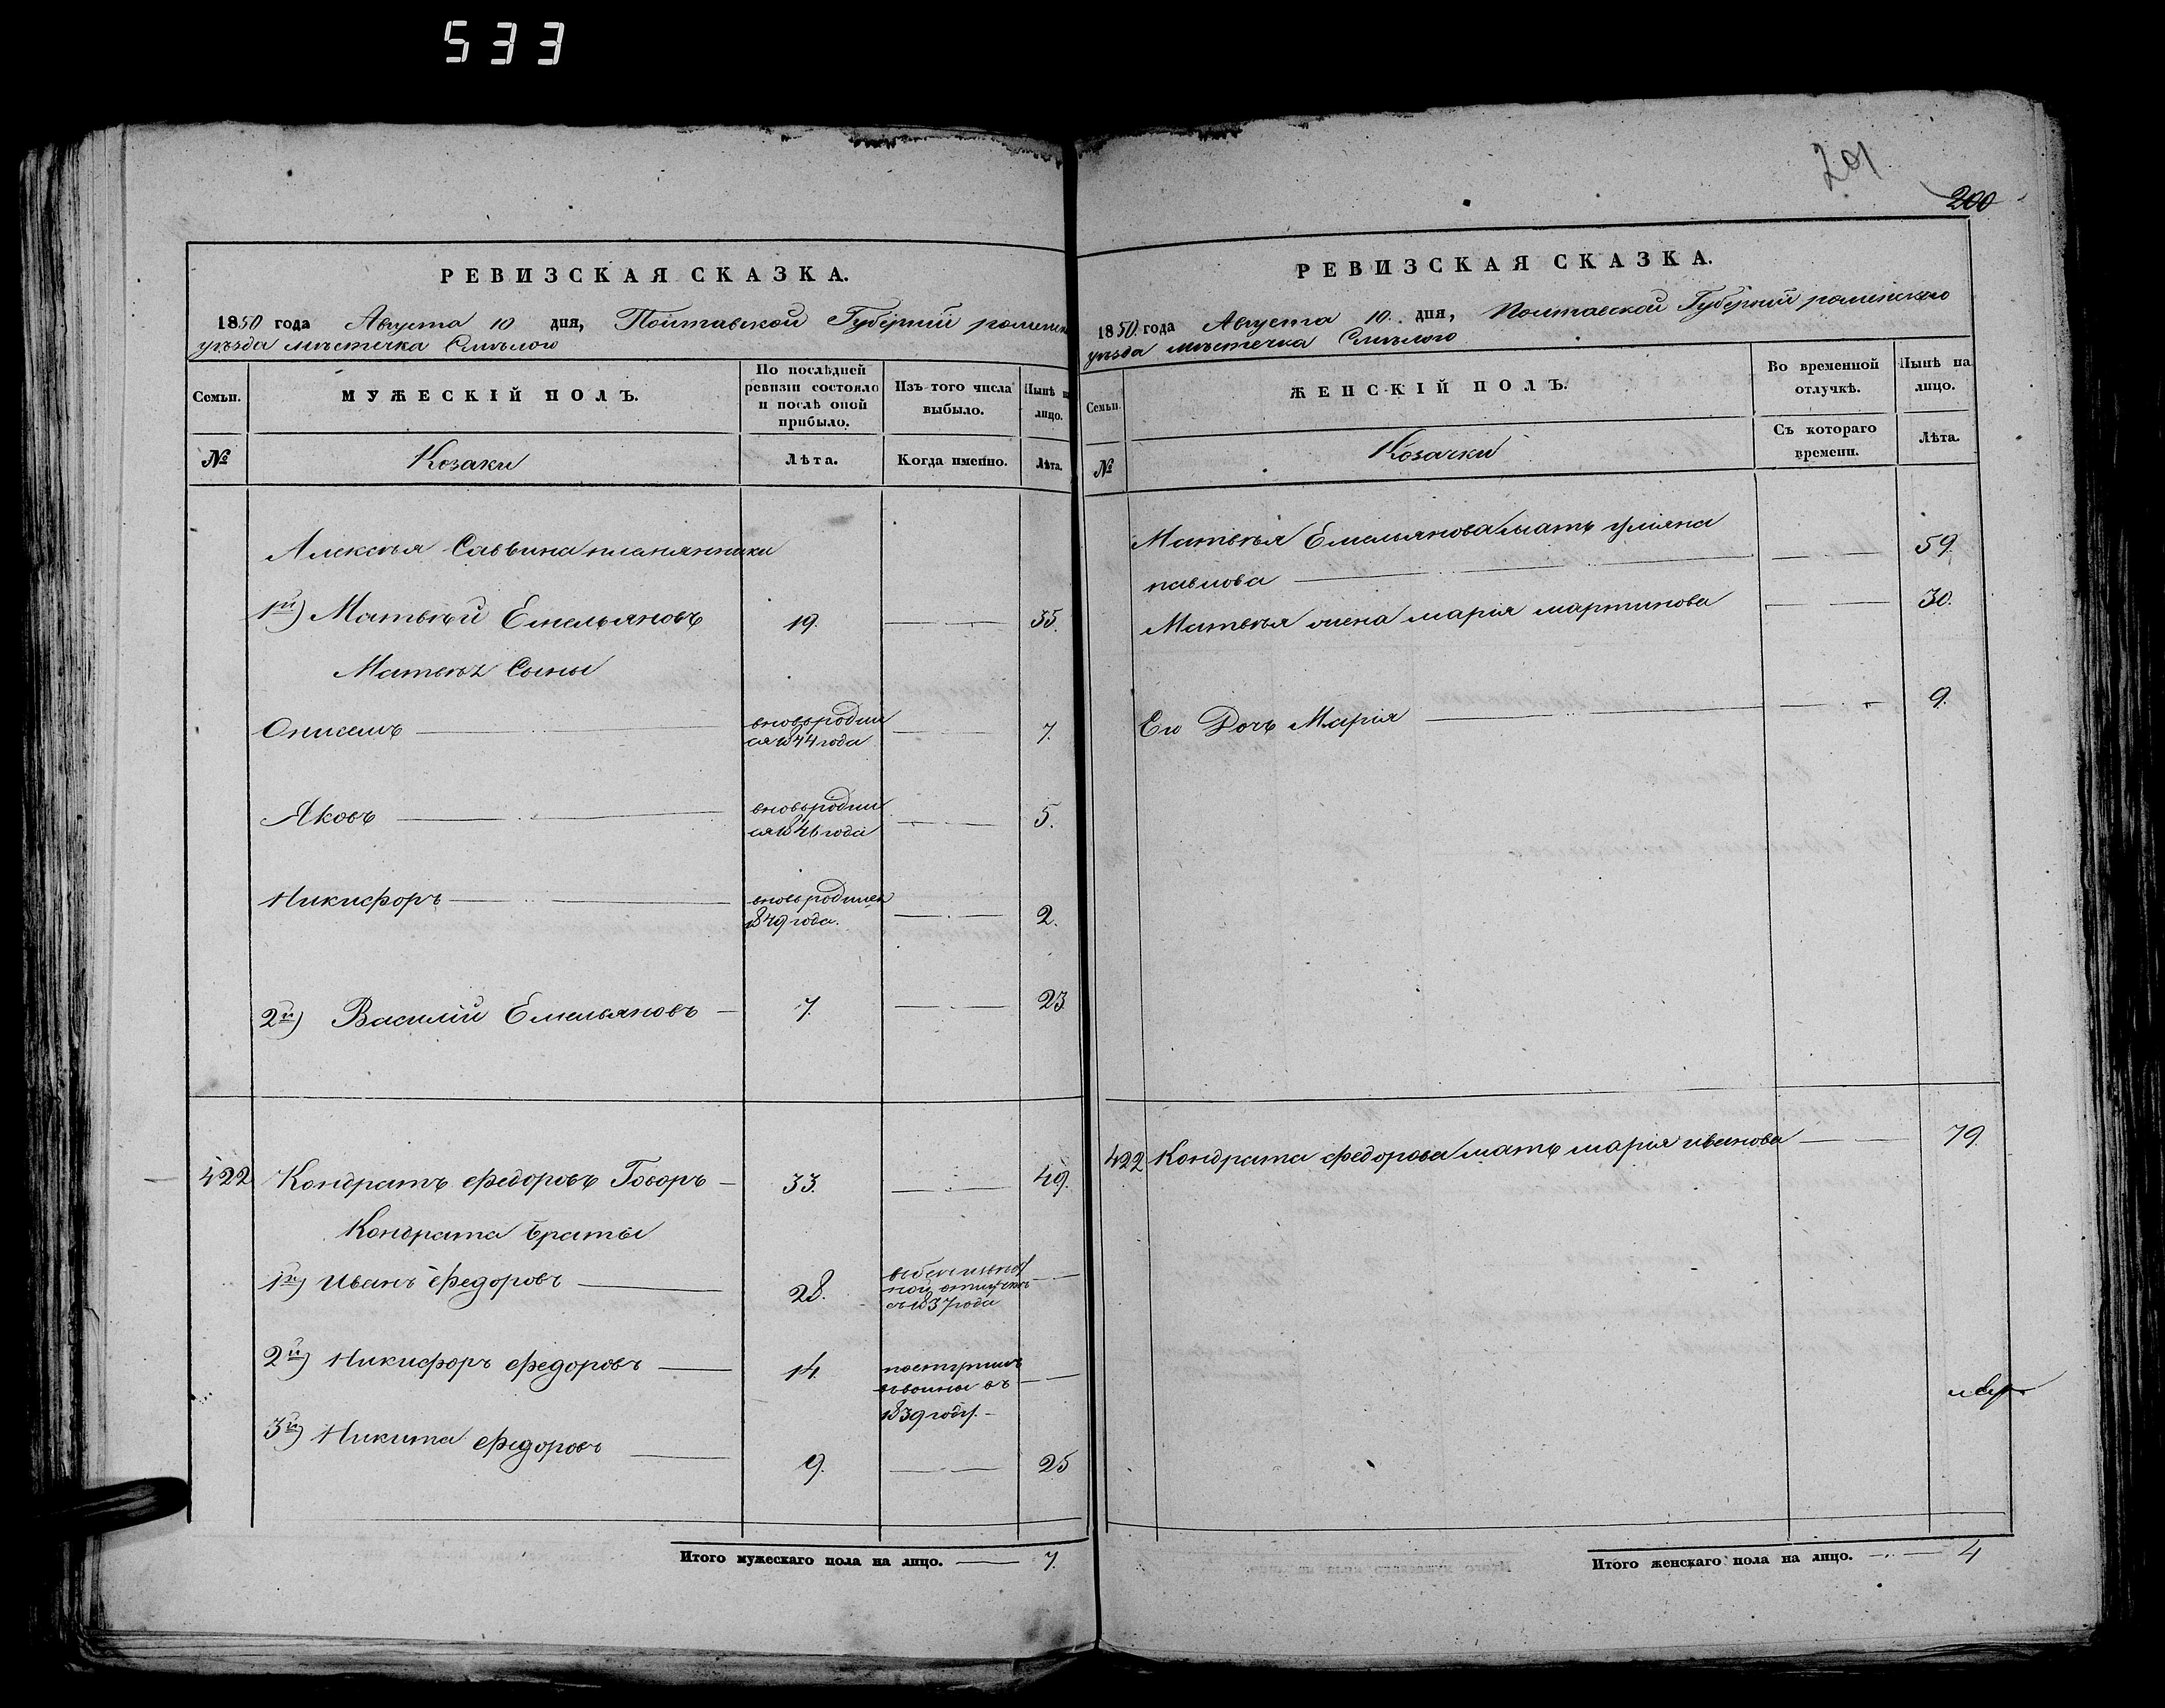 533
РЕВИЗСКАЯ СКАЗКА.
1850 года Августа 10 дня, Полтавской Губерніи роменск
уѣзда мѣстечка Смѣлого
Семьи.
МУЖЕСКІЙ ПОЛЪ.
По послѣдней
ревизіи состояло
и послѣ оной
прибыло.
Изъ того числа
выбыло.
Нынѣ н
лицо.
№
Козаки
Лѣта.
Когда именно.
Лѣта.
Алексѣя Саввина племянники
1й) Матвѣй Емельяновъ 19. 35.
Матвѣя Сыны
Онисимъ вновь родил
ся 1844 года 7.
Яковъ вновь родил
ся 1846 года 5.
Никифоръ вновь родился
1849 года. 2.
2й) Василій Емельяновъ 7. 23
422 Кондратъ Федоровъ Говоръ 33. 49.
Кондрата браты
1й) Иванъ Федоровъ 28.
съ 1837 года
2й) Никифоръ Федоровъ 14. поступилъ
въ
1839 году.
3й) Никита Федоровъ 9. 25
Итого мужескаго пола на лицо. 7.
201
200
РЕВИЗСКАЯ СКАЗКА.
1850 года Августа 10 дня, Полтавской Губерніи роменского
уѣзда мѣстечка Смѣлого
Семьи.
ЖЕНСКІЙ ПОЛЪ.
Во временной
отлучкѣ.
Нынѣ на
лицо.
№
Козачки
Съ котораго
времени.
Лѣта.
Матвѣя Емельянова мать уліяна
павлова 59.
Матвѣя жена марія мартинова 30.
Его Дочь Марія 9.
422 Кондрата Федорова мать марія иванова 79.
Итого женскаго пола на лицо. 4